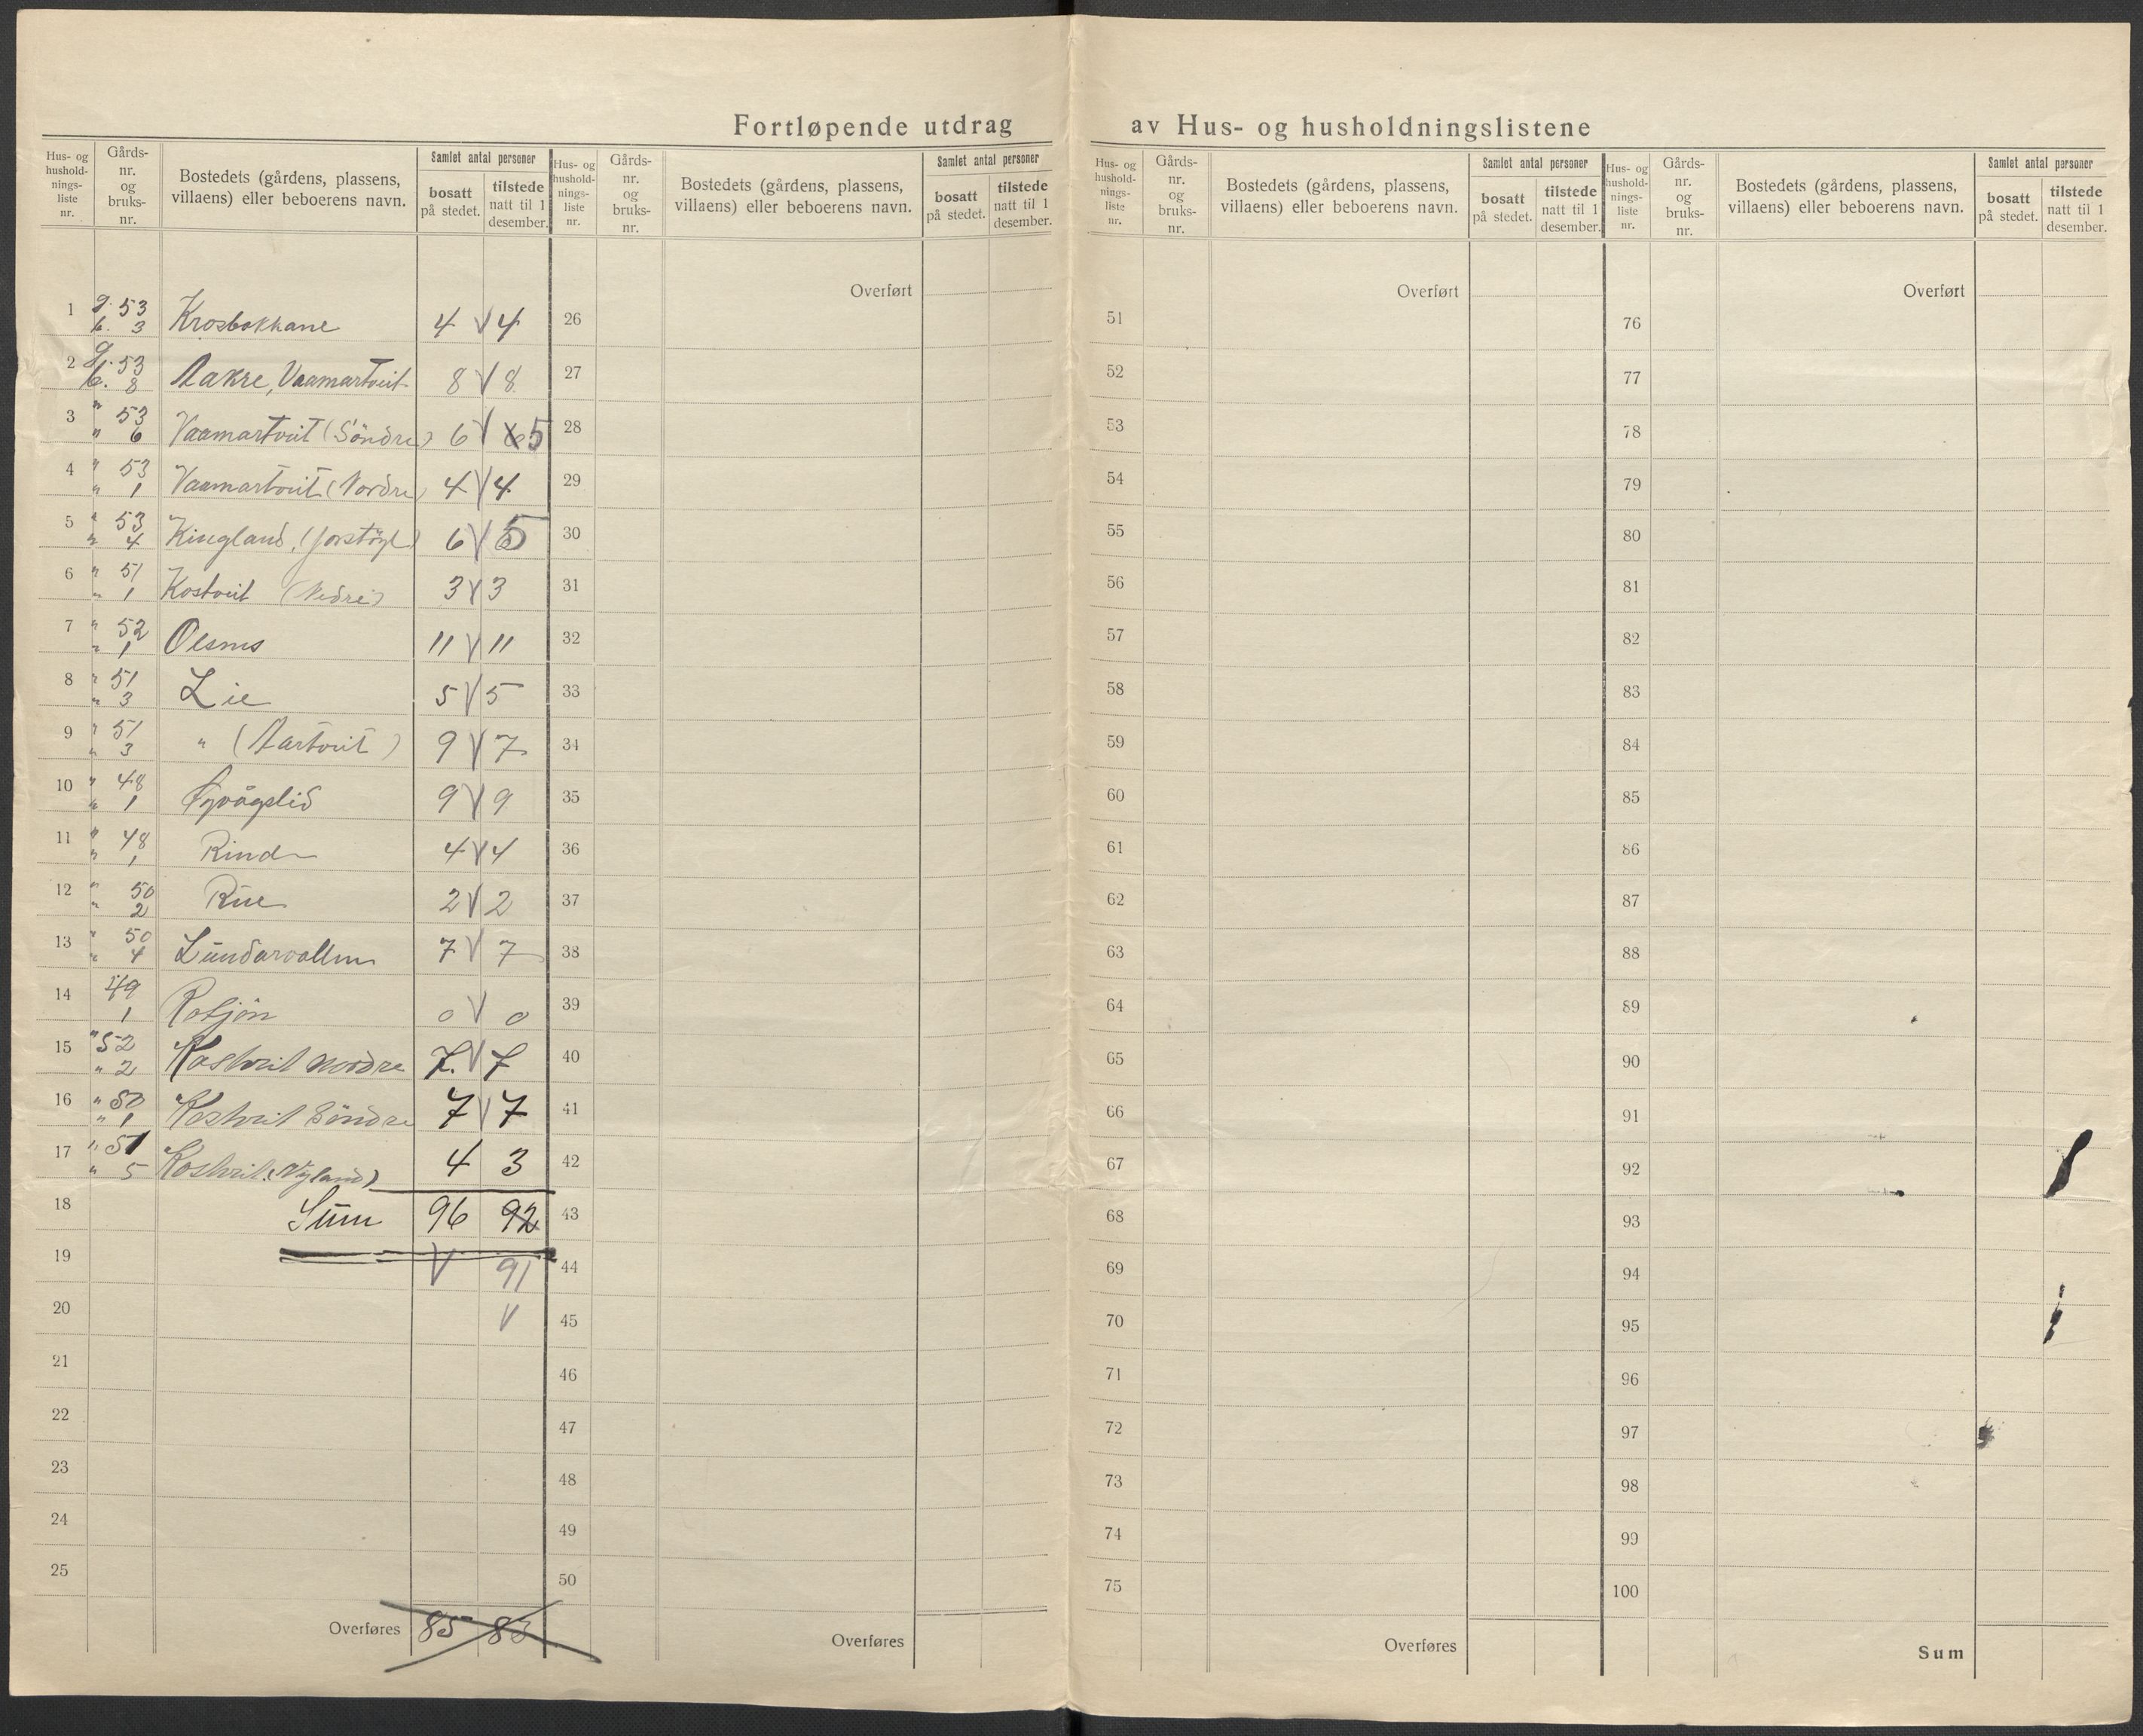 Fortløpende utdrag av Hus- og husholdningslistene
Hus- og hushold-nings-liste nr. Gårds-nr. og bruks-nr. Bostedets (gårdens, plassens, villaens) eller beboerens navn. Samlet antal personer bosatt på stedet. tilstede natt til 1 desember.
Hus- og hushold-nings-liste nr. Gårds-nr. og bruks-nr. Bostedets (gårdens, plassens, villaens) eller beboerens navn. Samlet antal personer bosatt på stedet. tilstede natt til 1 desember.
Hus- og hushold-nings-liste nr. Gårds-nr. og bruks-nr. Bostedets (gårdens, plassens, villaens) eller beboerens navn. Samlet antal personer bosatt på stedet. tilstede natt til 1 desember.
Hus- og hushold-nings-liste nr. Gårds-nr. og bruks-nr. Bostedets (gårdens, plassens, villaens) eller beboerens navn. Samlet antal personer bosatt på stedet. tilstede natt til 1 desember.
Overført Overført Overført
1 g. 53 b. 3 Krosbakkane 4 V 4
2 g. 53 b. 8 Aakre, Vaamartveit 8 V 8
3 " 53 " 6 Vaamartveit (Söndre) 6 V 6 5
4 " 53 " 1 Vaamartveit (Nordre) 4 V 4
5 " 53 " 4 Kingland 6 V 5
6 " 51 " 1 Kostveit (Nedre) 3 V 3
7 " 52 " 1 11 V 11
8 " 51 " 3 Lie 5 V 5
9 " 51 " 3 " (Aartveit) 9 V 7
10 " 48 " 1 9 V 9
11 " 48 " 1 Rind 4 V 4
12 " 50 " 2 Rue 2 V 2
13 " 50 " 4 Lundarvallen 7 V 7
14 49 1 0 V 0
15 " 52 " 2 Kostveit Nordre 7. V 7
16 " 50 " 1 Kostveit Söndre 7 V 7
17 " 51 " 5 Kostveit (Nyland) 4 3
18 Sum 96 92
19 V 91
20 V
21
22
23
24
25
Overføres 85 83
26
27
28
29
30
31
32
33
34
35
36
37
38
39
40
41
42
43
44
45
46
47
48
49
50
Overføres
51
52
53
54
55
56
57
58
59
60
61
62
63
64
65
66
67
68
69
70
71
72
73
74
75
Overføres
76
77
78
79
80
81
82
83
84
85
86
87
88
89
90
91
92
93
94
95
96
97
98
99
100
Sum